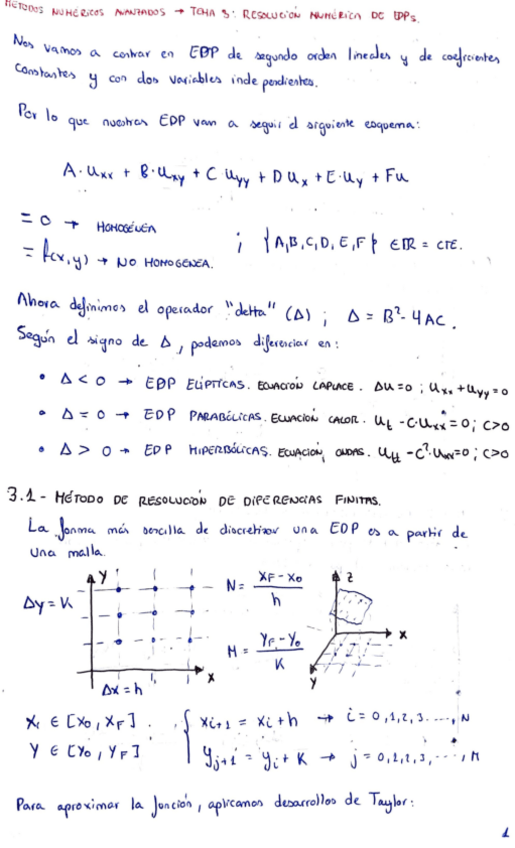 MÉTODOS NUMÉRICOS AVANZADOS → TEMA 3: RESOLUCIÓN NUMÉRICA DE EDPs.
Nos vamos a centrar en EDP de segundo orden lineales y de coeficientes
constantes y con dos variables independientes.
Por lo que nuestras EDP van a seguir el siguiente esquema:
A·uxx + B·uxy + C uyy + D ux + E·uy + Fu
= 0 → HOMOGÉNEA
= f(x,y) → NO HOMOGÉNEA. ; {A,B,C,D,E,F} ∈ ℝ = CTE.
Ahora definimos el operador "delta" (Δ) ; Δ = B² - 4AC.
Según el signo de Δ, podemos diferenciar en:
• Δ < 0 → EDP ELÍPTICAS. ECUACIÓN LAPLACE. Δu=0 ; uxx + uyy = 0
• Δ = 0 → EDP PARABÓLICAS. ECUACIÓN CALOR. ut - C·uxx = 0 ; C>0
• Δ > 0 → EDP HIPERBÓLICAS. ECUACIÓN ONDAS. utt - C²·uxx=0 ; C>0
3.1 - MÉTODO DE RESOLUCIÓN DE DIFERENCIAS FINITAS.
La forma más sencilla de discretizar una EDP es a partir de
una malla.
Y
Δy = K
X
Δx = h
N = (XF - X0) / h
M = (YF - Y0) / K
Z
X
Y
X ∈ [X0, XF] . { xi+1 = xi + h → i = 0,1,2,3....., N
Y ∈ [Y0, YF] yj+1 = yj + K → j = 0,1,2,3,...., M
Para aproximar la función, aplicamos desarrollos de Taylor:
1